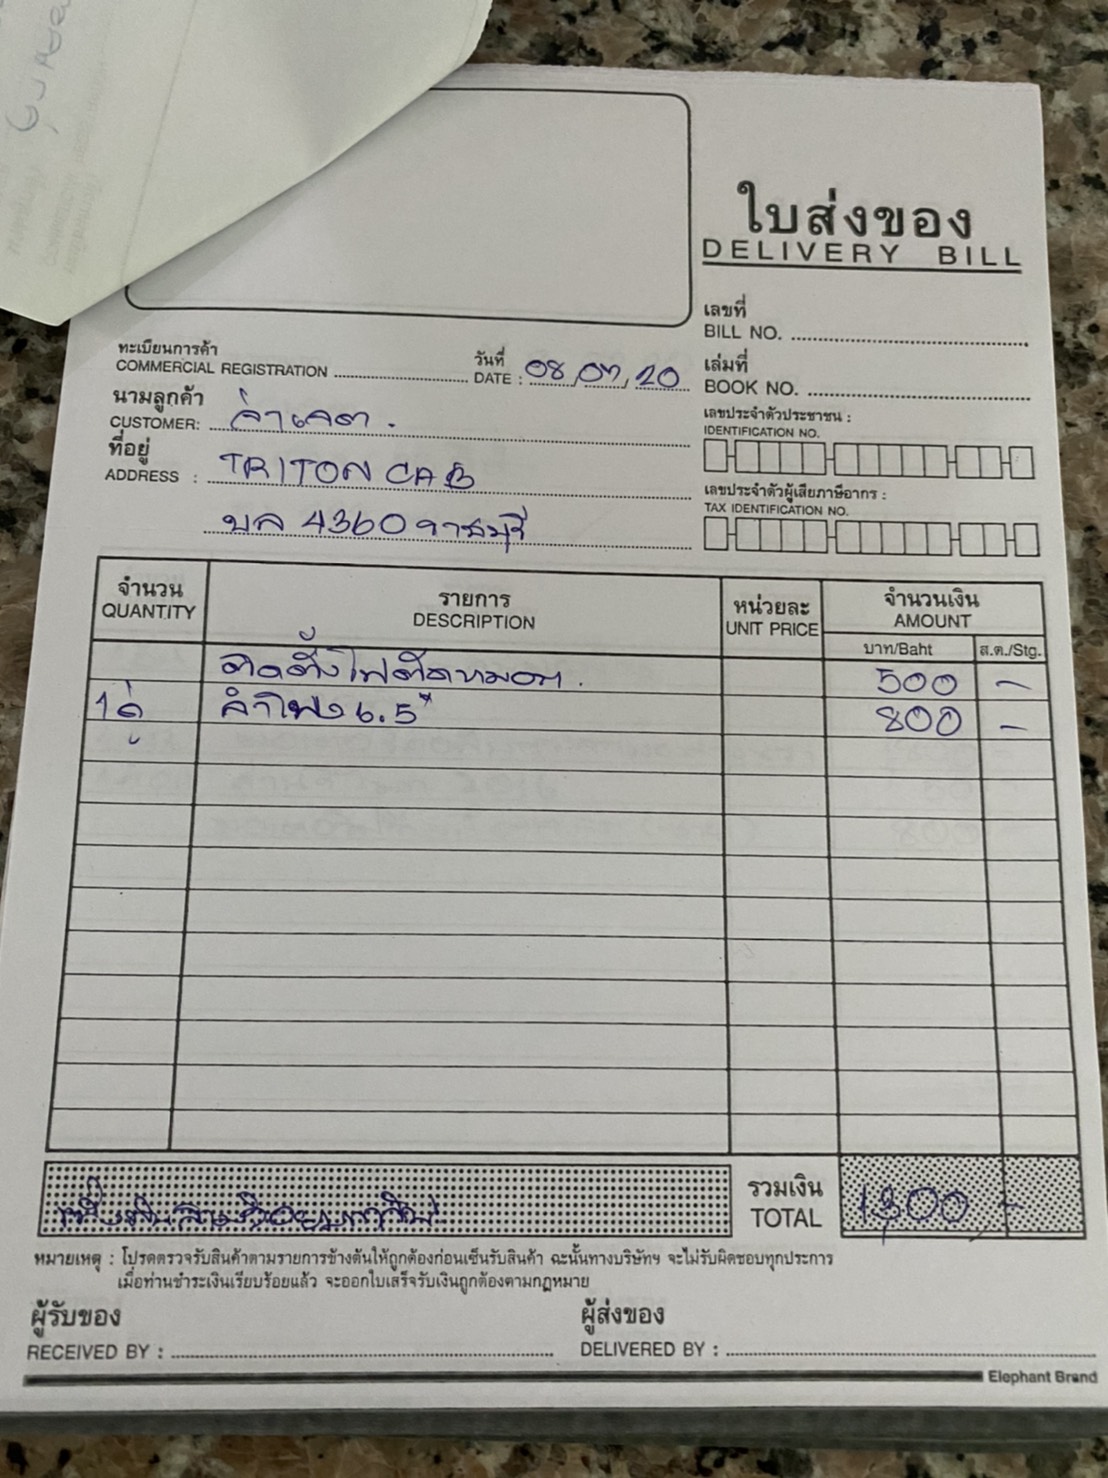 ใบส่งของ
DELIVERY BILL
เลขที่
BILL NO.
ทะเบียนการค้า
COMMERCIAL REGISTRATION
วันที่
DATE : 08/07/20
เล่มที่
BOOK NO.
นามลูกค้า
CUSTOMER:
เลขประจำตัวประชาชน :
IDENTIFICATION NO.
ที่อยู่
ADDRESS : TRITON CAB
เลขประจำตัวผู้เสียภาษีอากร :
TAX IDENTIFICATION NO.
บล 4360 ราชบุรี
จำนวน
QUANTITY
รายการ
DESCRIPTION
หน่วยละ
UNIT PRICE
จำนวนเงิน
AMOUNT
บาท/Baht
ส.ต./Stg.
ติดตั้งไฟตัดหมอก. 500 -
1คู่ ลำโพง 6.5" 800 -
หนึ่งพันสามร้อยบาทถ้วน
รวมเงิน
TOTAL
1,300 -
หมายเหตุ : โปรดตรวจรับสินค้าตามรายการข้างต้นให้ถูกต้องก่อนเซ็นรับสินค้า ฉะนั้นทางบริษัทฯ จะไม่รับผิดชอบทุกประการ
เมื่อท่านชำระเงินเรียบร้อยแล้ว จะออกใบเสร็จรับเงินถูกต้องตามกฎหมาย
ผู้รับของ
RECEIVED BY :
ผู้ส่งของ
DELIVERED BY :
Elephant Brand